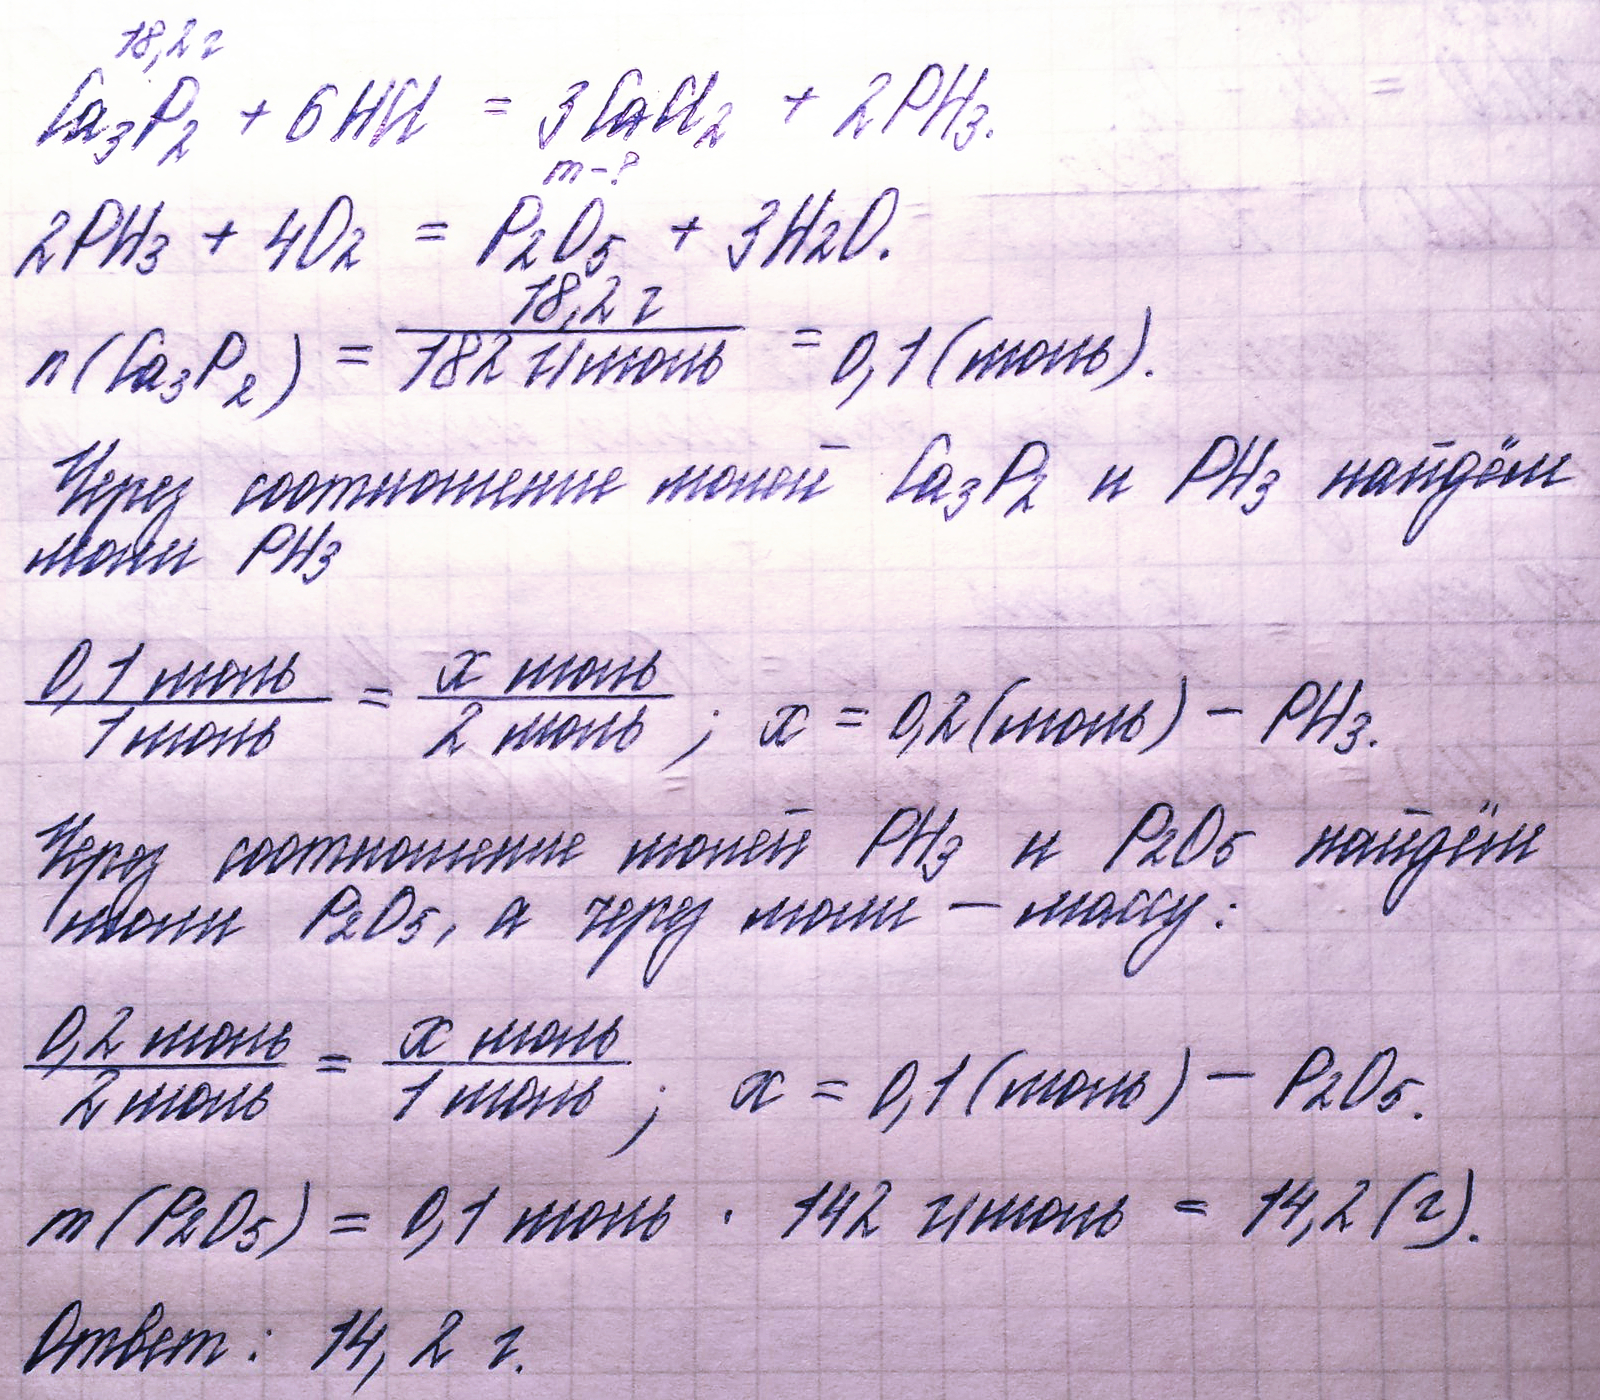 18,2 г
Ca3P2 + 6HCl = 3CaCl2 + 2PH3.
m-?
2PH3 + 4O2 = P2O5 + 3H2O.
18,2 г
n(Ca3P2) = 182 г/моль = 0,1 (моль).
Через соотношение молей Ca3P2 и PH3 найдём
моли PH3
0,1 моль = x моль
1 моль 2 моль ; x = 0,2 (моль) – PH3.
Через соотношение молей PH3 и P2O5 найдём
моли P2O5, а через моли – массу:
0,2 моль = x моль
2 моль 1 моль ; x = 0,1 (моль) – P2O5.
m(P2O5) = 0,1 моль · 142 г/моль = 14,2 (г).
Ответ: 14,2 г.